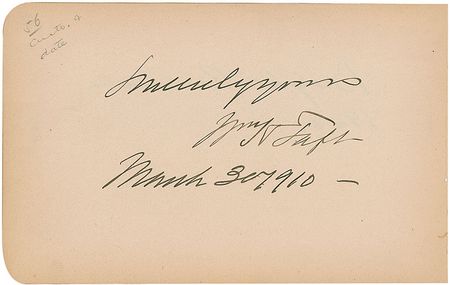 56
date
Sincerely yours
Wm H Taft
March 30 1910 —